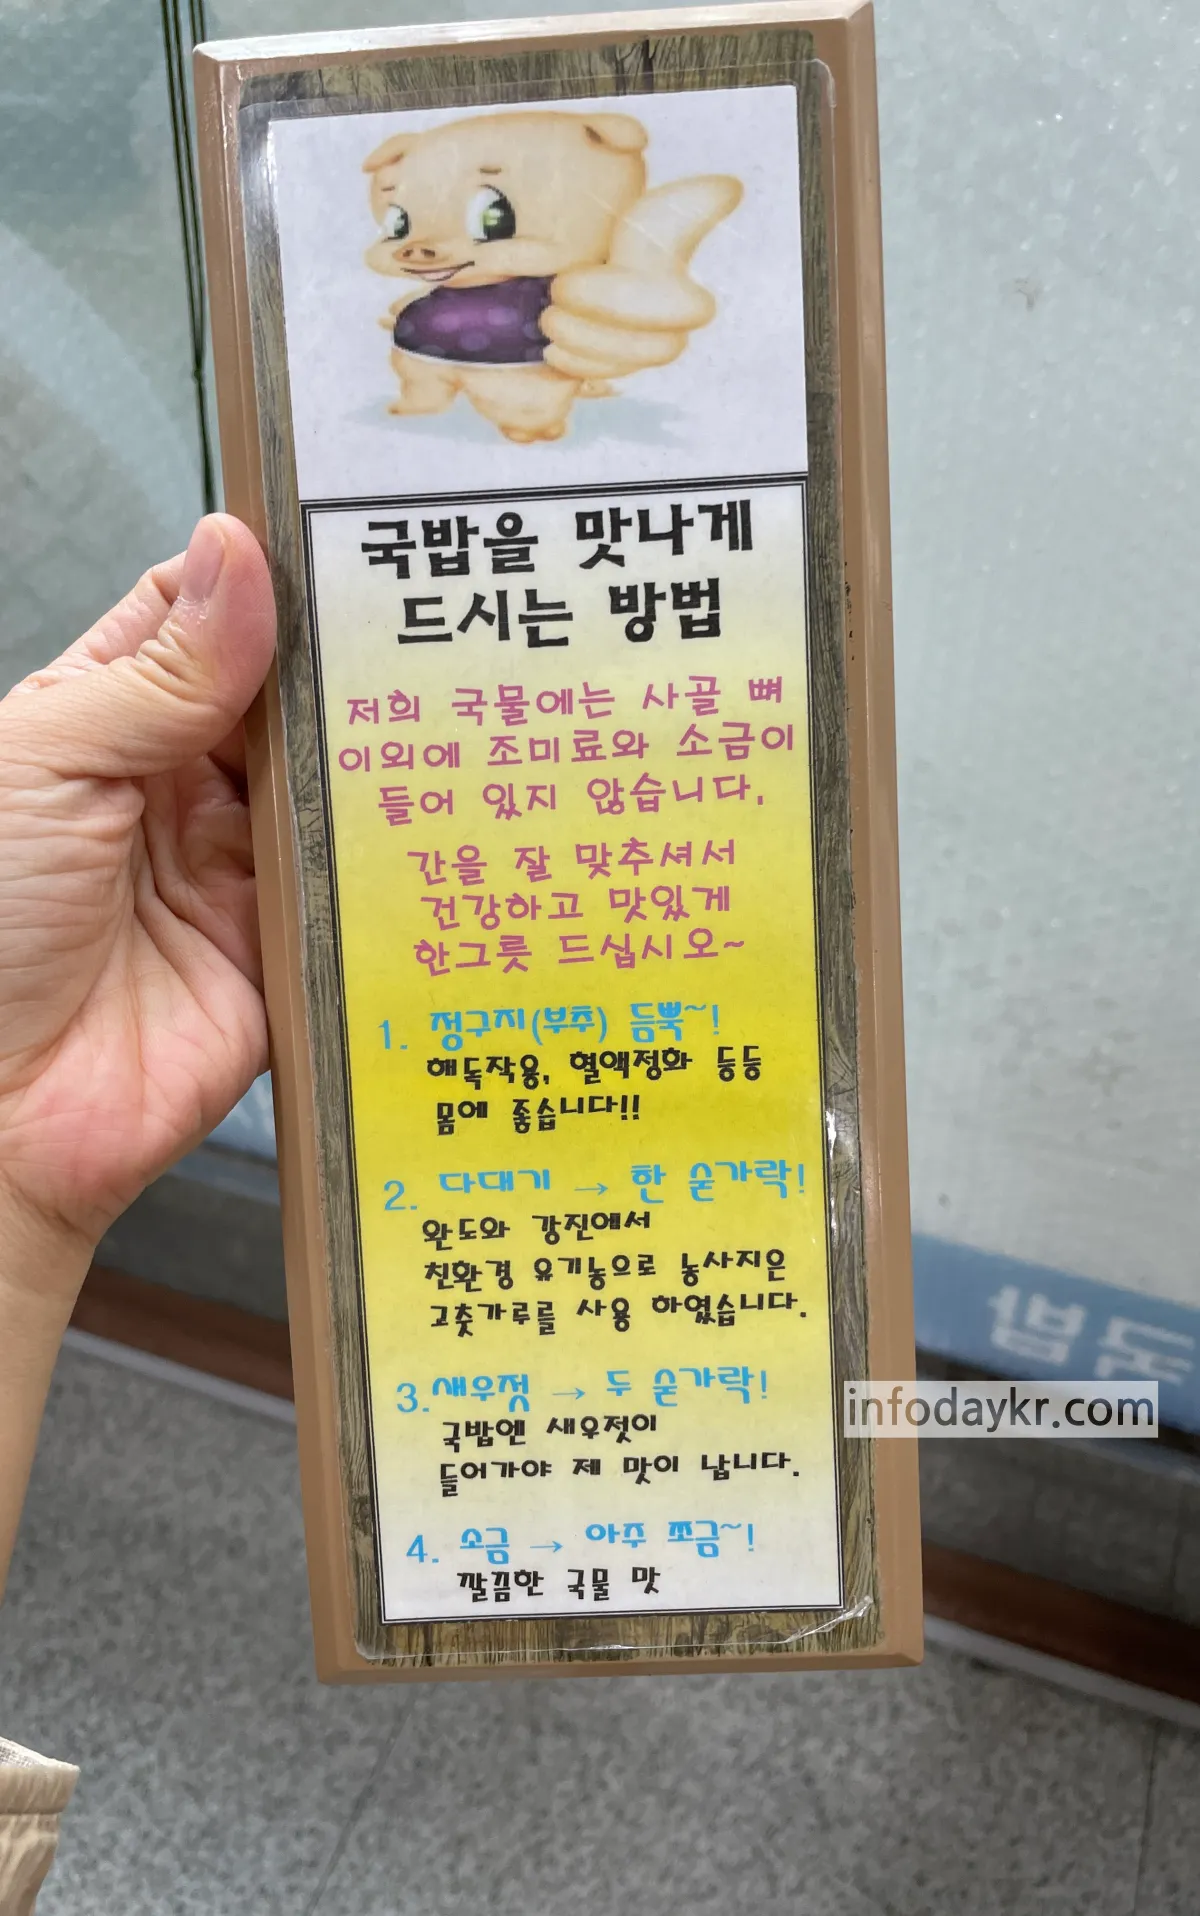 국밥을 맛나게
드시는 방법
저희 국물에는 사골 뼈
이외에 조미료와 소금이
들어 있지 않습니다.
간을 잘 맞추셔서
건강하고 맛있게
한그릇 드십시오~
1. 정구지(부추) 듬뿍~!
해독작용, 혈액정화 등등
몸에 좋습니다!!
2. 다대기 → 한 숟가락!
완도와 강진에서
친환경 유기농으로 농사지은
고춧가루를 사용 하였습니다.
3. 새우젓 → 두 숟가락!
국밥엔 새우젓이
들어가야 제 맛이 납니다.
4. 소금 → 아주 쪼금~!
깔끔한 국물 맛
infodaykr.com